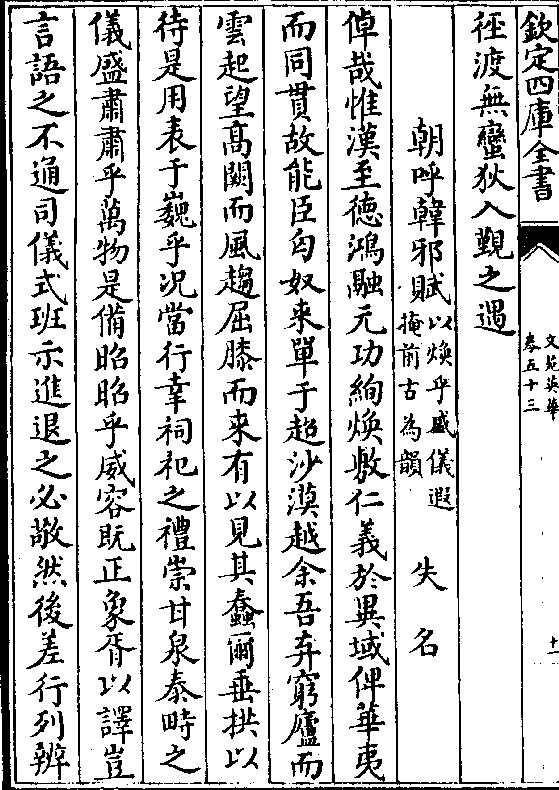 欽定四庫全書
文苑英華
卷五十三
十一
徑渡無蠻狄入覲之遇
朝呼韓邪賦以煥乎盛儀遐掩前古為韻 失名
倬哉惟漢至德鴻融元功絢煥敷仁義於異域俾華夷
而同貫故能臣匈奴来單于超沙漠越余吾弃窮廬而
雲起望髙闕而風趨屈膝而来有以見其蠢爾垂拱以
待是用表于巍乎况當行幸祠祀之禮崇甘泉泰畤之
儀盛肅肅乎萬物是備昭昭乎威容既正象胥以譯豈
言語之不通司儀式班示進退之必敬然後差行列辨